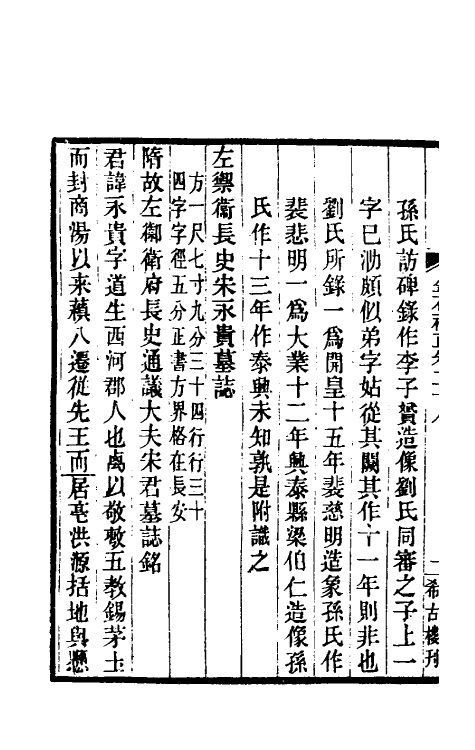 孫氏訪碑錄作李子贇造像劉氏同審之子上一
字已泐頗似弟字姑從其闕其作十一年則非也
劉氏所錄一爲開皇十五年裴慈明造象孫氏作
裴悲明一爲大業十二年興泰縣梁伯仁造像孫
氏作十三年作泰興未知孰是附識之
左禦衛長史宋永貴墓誌
方一尺七寸九分三十四行行三十
四字字徑五分正書方界格在長安
隋故左御衛府長史通議大夫宋君墓誌銘
君諱永貴字道生西河郡人也卨以敬敷五教錫茅土
而封商湯以來蘱八遷從先王而居亳洪源括地與懸
希古樓刊